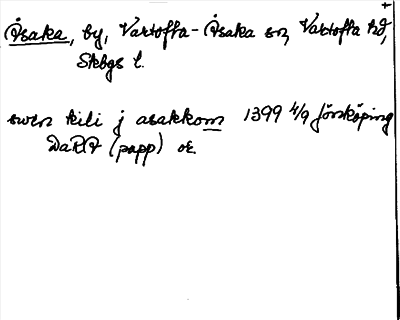 Åsaka, by, Vartofta-Åsaka sn, Vartofta hd,
Skbgs l.
swen kili j asakkom 1399 4/9 Jönköping
DaRA (papp) or.